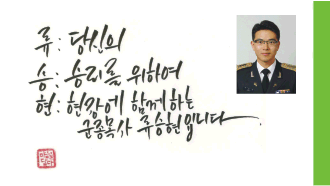 류: 당신의
승: 승리를 위하여
현: 현장에 함께하는
군종목사 류승현입니다.